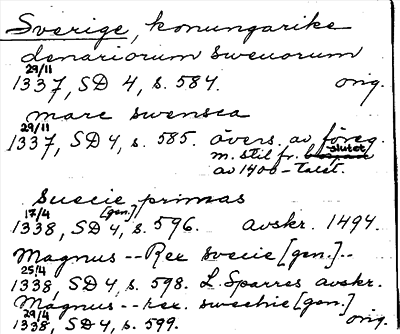 Sverige, konungarike
denariorum swenorum
29/11
1337, SD 4, s. 584. orig.
marc swensca
29/11
1337, SD 4, s. 585. övers. av föreg.
m. stil fr. slutet
av 1400-talet.
Suecie primas
17/4 [gen.]
1338, SD 4, s. 596. avskr. 1494.
Magnus -- Rex svecie [gen.]--
25/4
1338, SD 4, s. 598. L. Sparres avskr.
Magnus -- rex swechie [gen.]
29/4
1338, SD 4, s. 599. orig.